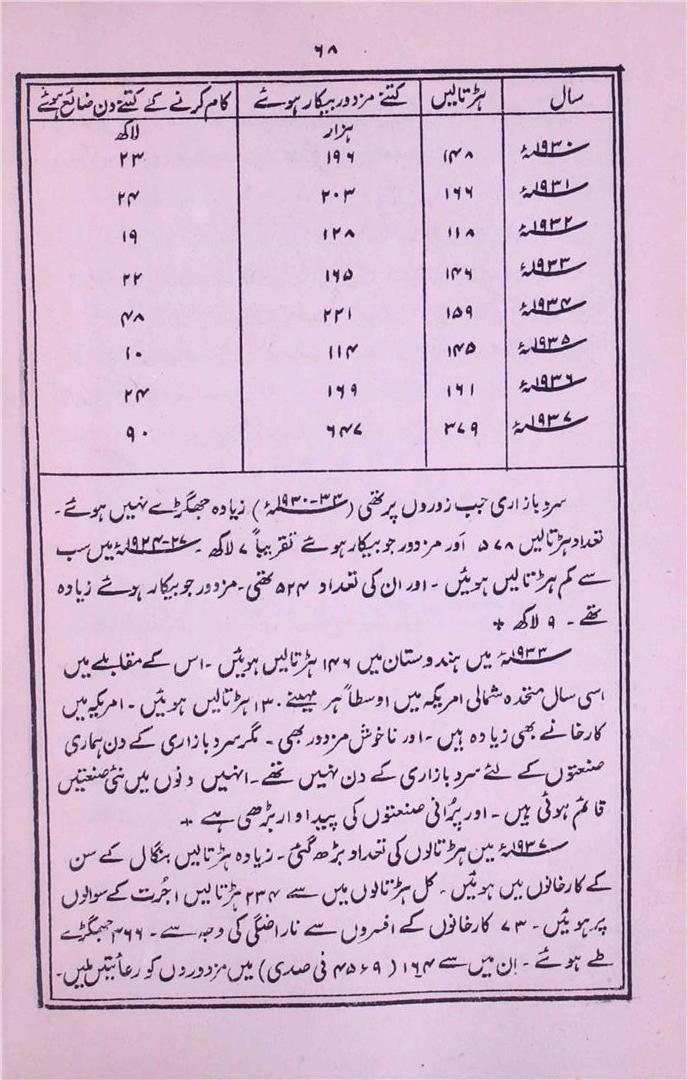 ۶۸
سال ہڑتالیں کتنے مزدور بیکار ہوئے کام کرنے کے کتنے دن ضائع ہوئے
ہزار لاکھ
۱۹۳۰ء ۱۴۸ ۱۹۶ ۲۳
۱۹۳۱ء ۱۶۶ ۲۰۳ ۲۴
۱۹۳۲ء ۱۱۸ ۱۲۸ ۱۹
۱۹۳۳ء ۱۴۶ ۱۶۵ ۲۲
۱۹۳۴ء ۱۵۹ ۲۲۱ ۴۸
۱۹۳۵ء ۱۴۵ ۱۱۴ ۱۰
۱۹۳۶ء ۱۶۱ ۱۶۹ ۲۴
۱۹۳۷ء ۳۷۹ ۶۴۷ ۹۰
سرد بازاری جب زوروں پر تھی (۳۳-۱۹۳۰ء) زیادہ جھگڑے نہیں ہوئے۔
تعداد ہڑتالیں ۵۷۸ اور مزدور جو بیکار ہوئے تقریباً ۷ لاکھ۔ ۲۷-۱۹۲۴ء میں سب
سے کم ہڑتالیں ہوئیں۔ اور ان کی تعداد ۵۲۴ تھی۔ مزدور جو بیکار ہوئے زیادہ
تھے۔ ۹ لاکھ *
۱۹۳۳ء میں ہندوستان میں ۱۴۶ ہڑتالیں ہوئیں۔ اس کے مقابلے میں
اسی سال متحدہ شمالی امریکہ میں اوسطاً ہر مہینے ۱۳۰ ہڑتالیں ہوئیں۔ امریکہ میں
کارخانے بھی زیادہ ہیں۔ اور ناخوش مزدور بھی۔ مگر سرد بازاری کے دن ہماری
صنعتوں کے لئے سرد بازاری کے دن نہیں تھے۔ انہیں دنوں میں نئی صنعتیں
قائم ہوئی ہیں۔ اور پرانی صنعتوں کی پیداوار بڑھی ہے *
۱۹۳۷ء میں ہڑتالوں کی تعداد بڑھ گئی۔ زیادہ ہڑتالیں بنگال کے سن
کے کارخانوں میں ہوئیں۔ کل ہڑتالوں میں سے ۲۳۴ ہڑتالیں اجرت کے سوالوں
پر ہوئیں۔ ۷۳ کارخانوں کے افسروں سے ناراضگی کی وجہ سے۔ ۳۶۶ جھگڑے
طے ہوئے۔ ان میں سے ۱۶۴ (۴۵ء۶۹ فی صدی) میں مزدوروں کو رعائتیں ملیں۔